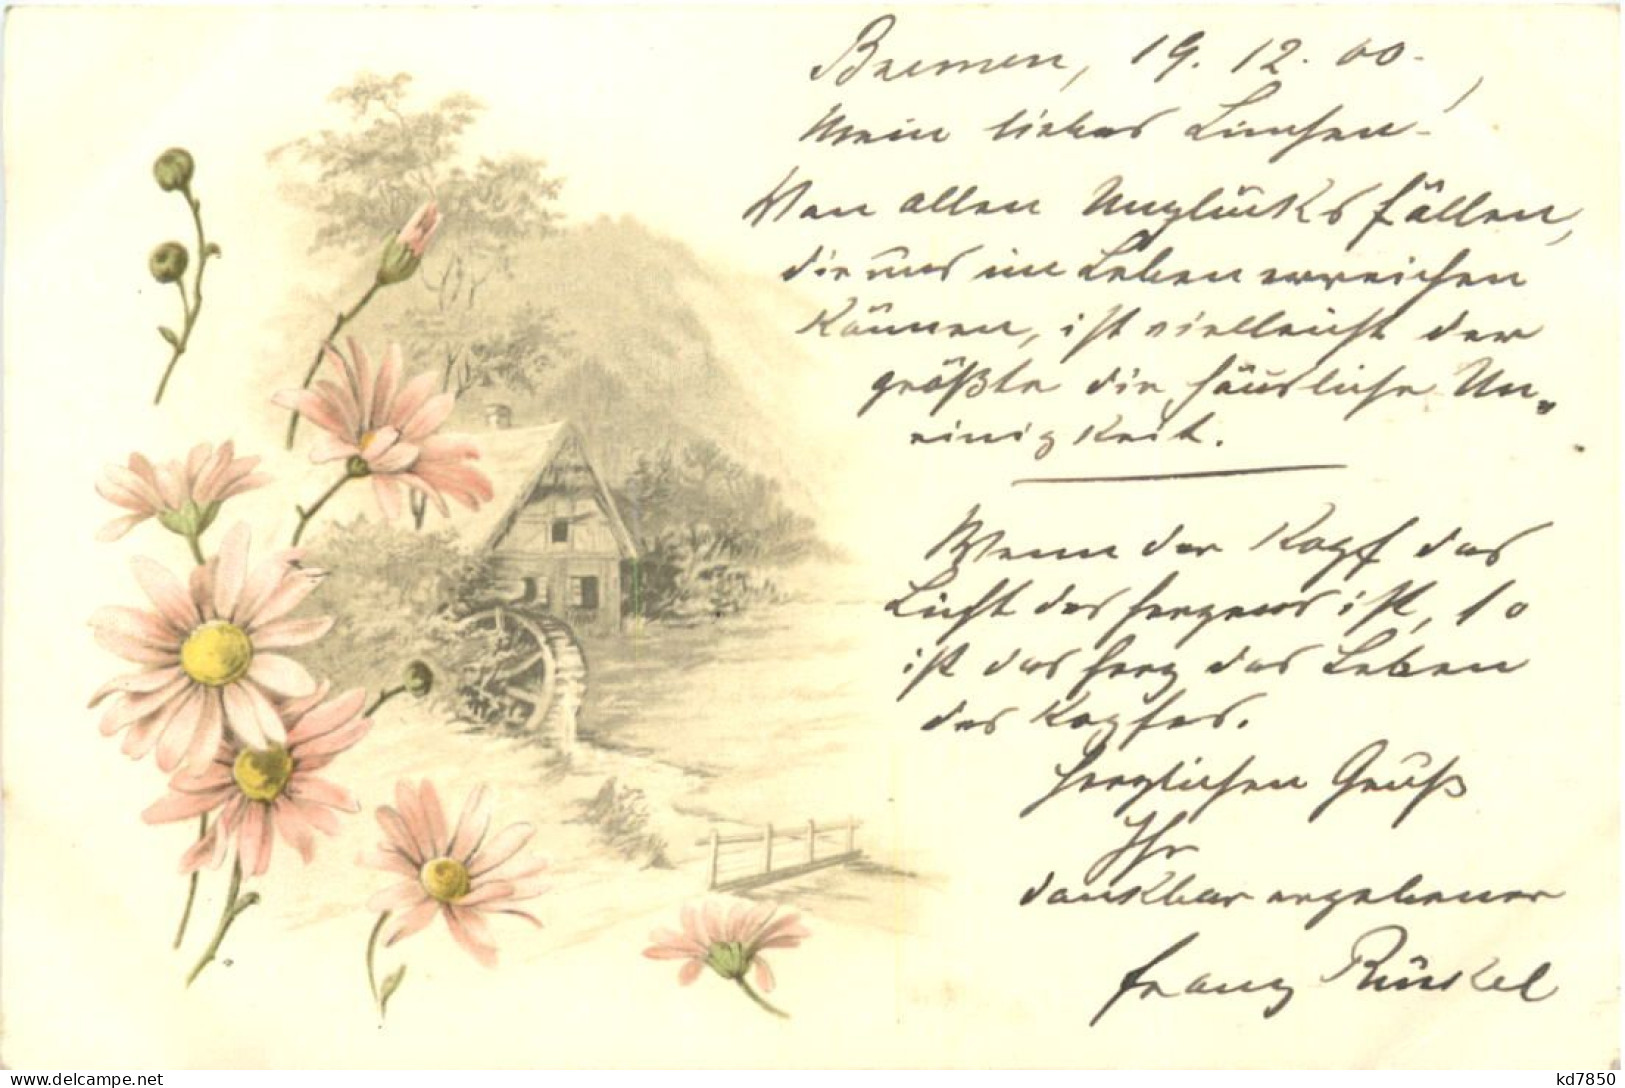 Bremen, 19. 12. 00.
Mein liebes Linchen!
Von allen Unglücksfällen,
die uns im Leben erreichen
können, ist vielleicht der
größte die häusliche Un-
einigkeit.
Wenn der Kopf das
Licht des Herzens ist, so
ist das Herz das Leben
des Kopfes.
Herzlichen Gruß
Ihr
dankbar ergebener
Franz
delcampe.net
kd7850